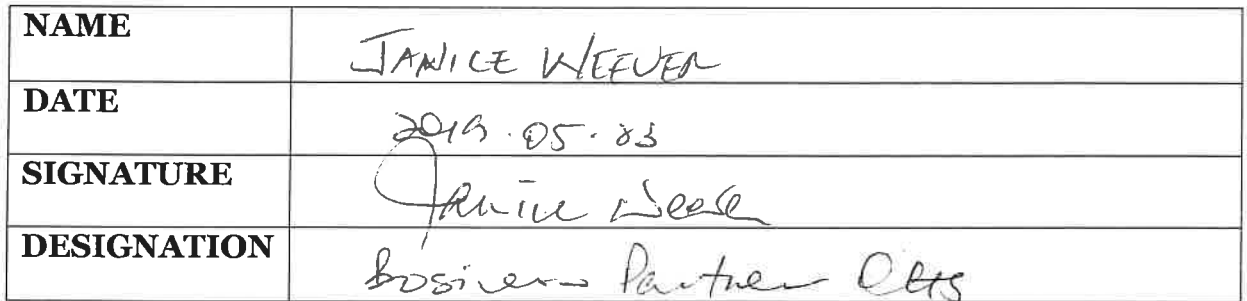 NAME JANICE WEEVER
DATE 2019.05.03
SIGNATURE Janice Weever
DESIGNATION Business Partner